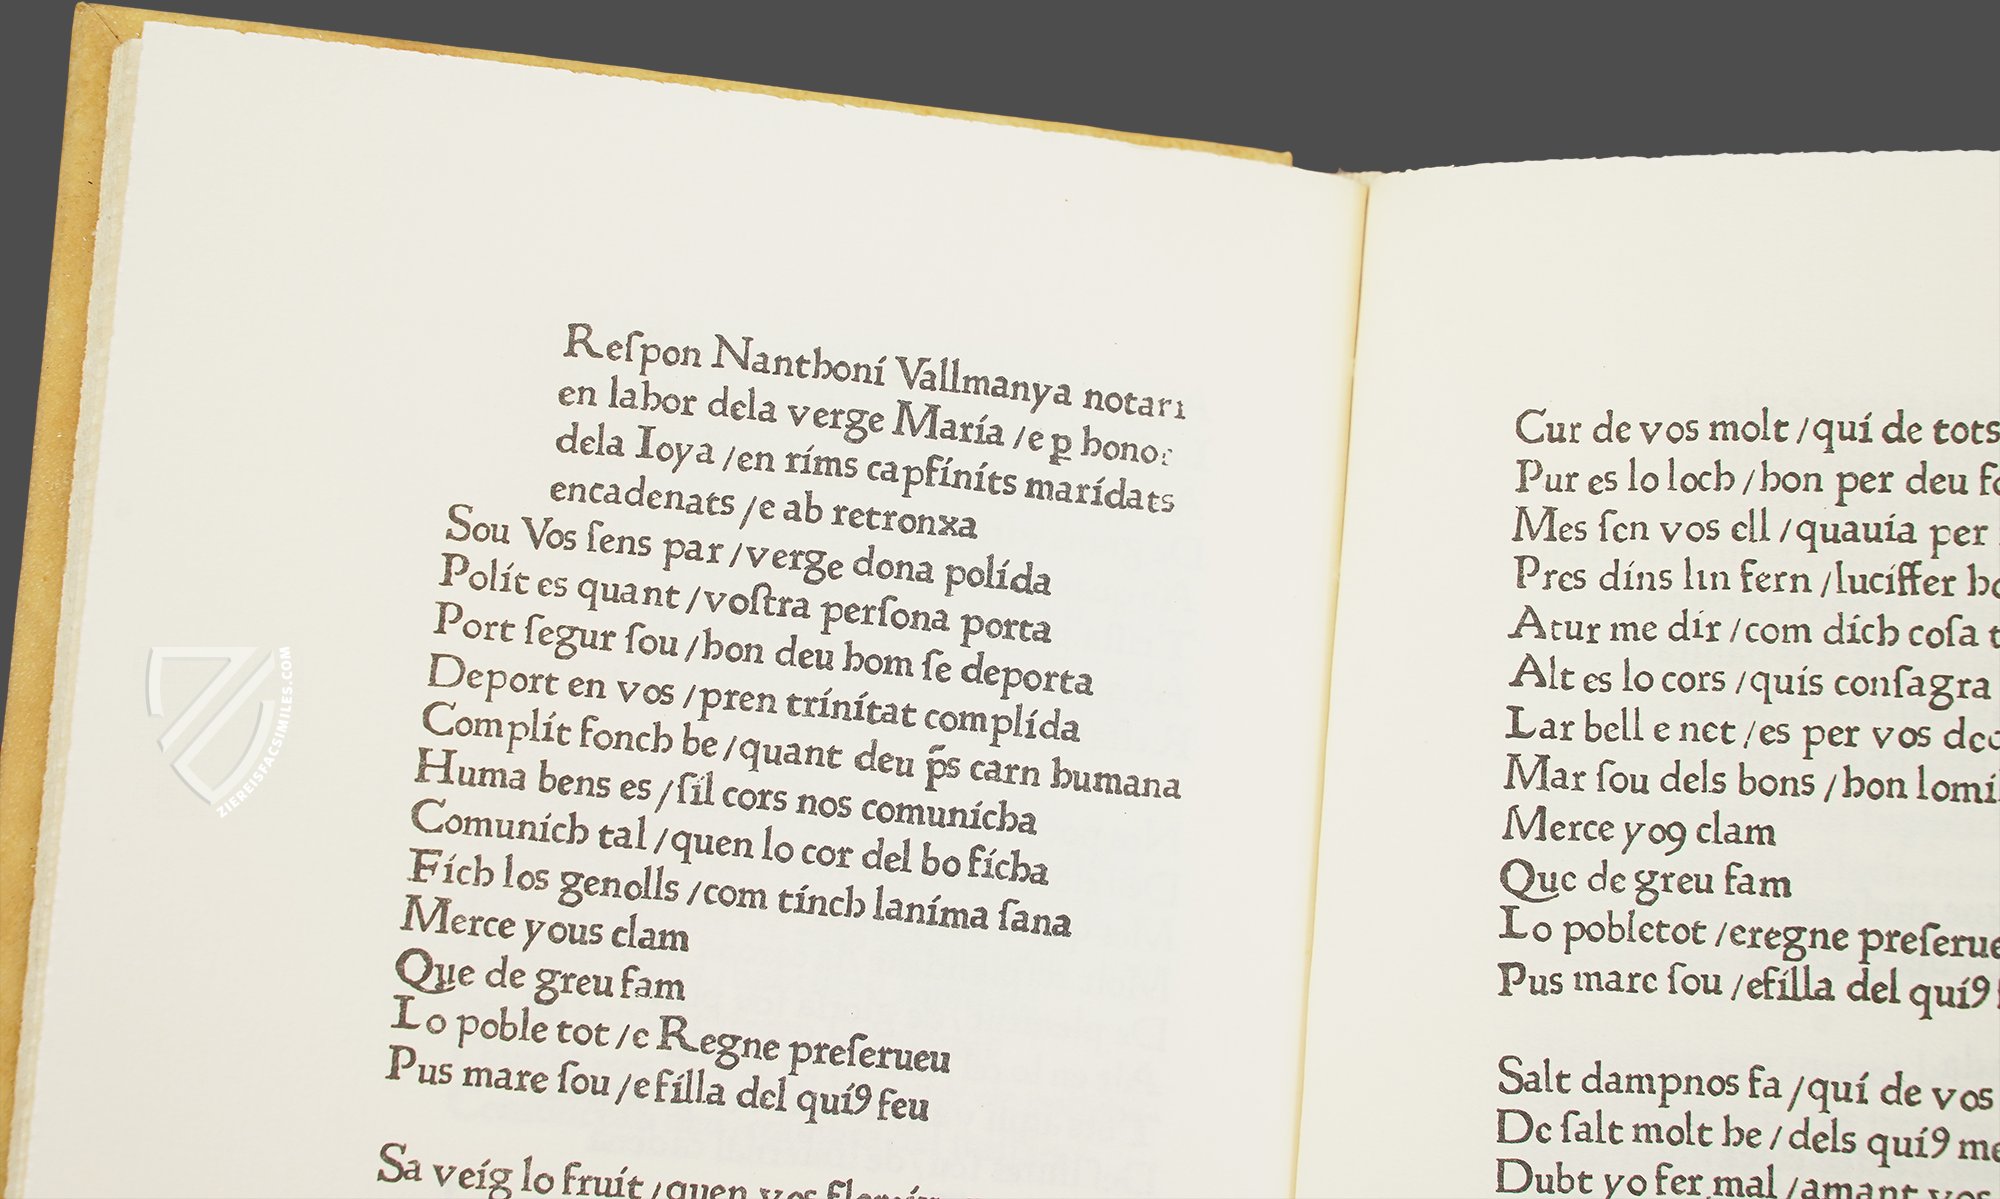 Reſpon Nanthoni Vallmanya notari
en lahor dela verge Maria /e ꝑ honor
dela Ioya /en rims capfinits maridats
encadenats /e ab retronxa
Sou Vos ſens par /verge dona polida
Polit es quant /voſtra perſona porta
Port ſegur ſou /hon deu hom ſe deporta
Deport en vos /pren trinitat complida
Complit fonch be /quant deu p̃s carn humana
Huma hens es /ſil cors nos comunicha
Comunich tal /quen lo cor del ho ficha
Fich los genolls /com tinch lanima ſana
Merce yous clam
Que de greu fam
Lo poble tot /e Regne preſerueu
Pus mare ſou /e filla del quiꝯ feu
Sa veig lo fruit /quen vos
Cur de vos molt /qui de tots
Pur es lo loch /hon per deu
Mes ſen vos ell /quauia per
Pres dins lin fern /luciffer
Atur me dir /com dich coſa
Alt es lo cors /quis conſagra
Lar bell e net /es per vos
Mar ſou dels bons /hon
Merce yoꝯ clam
Que de greu fam
Lo pobletot /eregne
Pus mare ſou /efilla del quiꝯ
Salt dampnos fa /qui de vos
De ſalt molt be /dels quiꝯ
Dubt yo fer mal /amant vos
ZIEREISFACSIMILES.COM